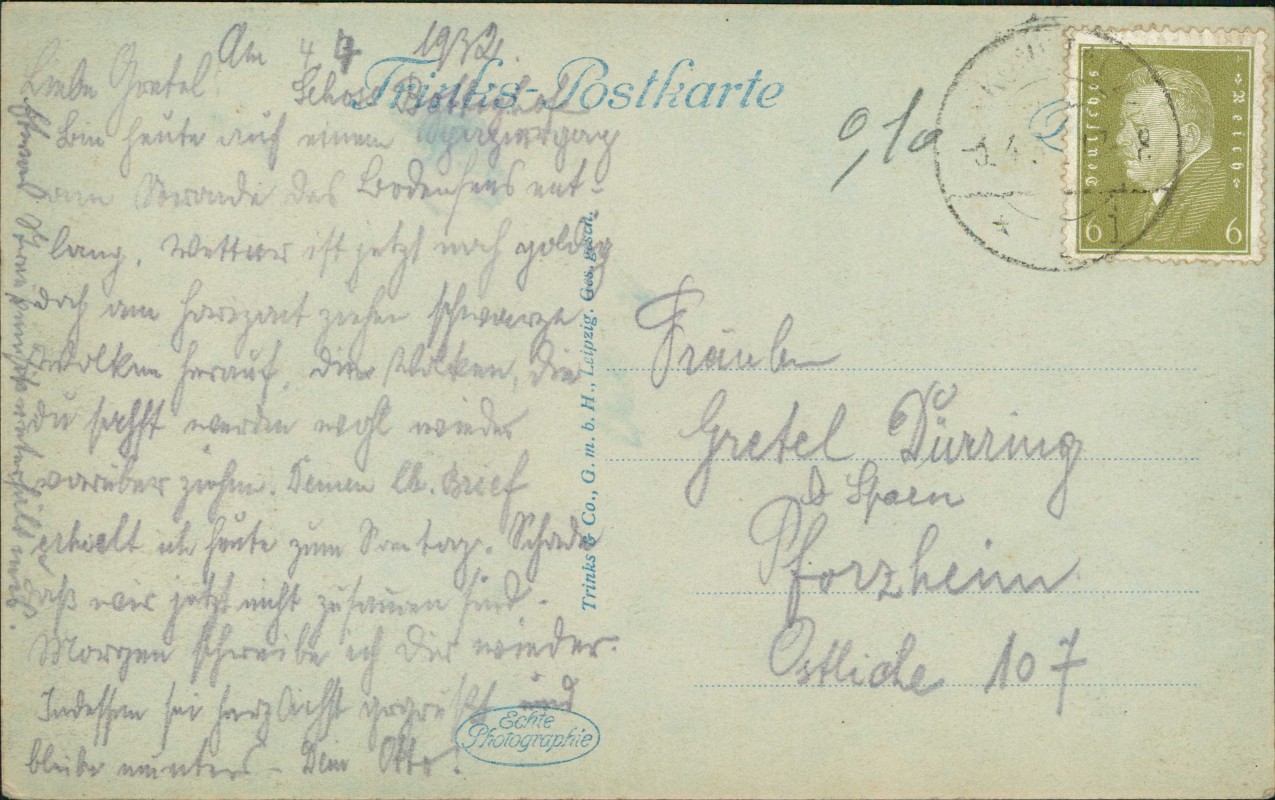 Am 4 4 1932.
Liebe Gretel!
Bin heute auf einem Spaziergang
am Strande des Bodensees ent-
lang. Wetter ist jetzt noch goldig
doch am Horizont ziehen schwarze
Wolken herauf. Die Wolken, die
du sahst werden wohl wieder
vorüber ziehen. Deinen lb. Brief
erhielt ich heute zum Sonntag. Schade
daß wir jetzt nicht zusammen sind.
Morgen schreibe ich Dir wieder.
Indessen sei herzlichst gegrüßt und
bleibe munter - Dein Otto!
Trinks-Postkarte
Trinks & Co., G. m. b. H., Leipzig. Ges. gesch.
Echte
Photographie
9,10
Deutsches Reich
6 6
Fräulein
Gretel Dürring
b Spaen
Pforzheim
Östliche 107